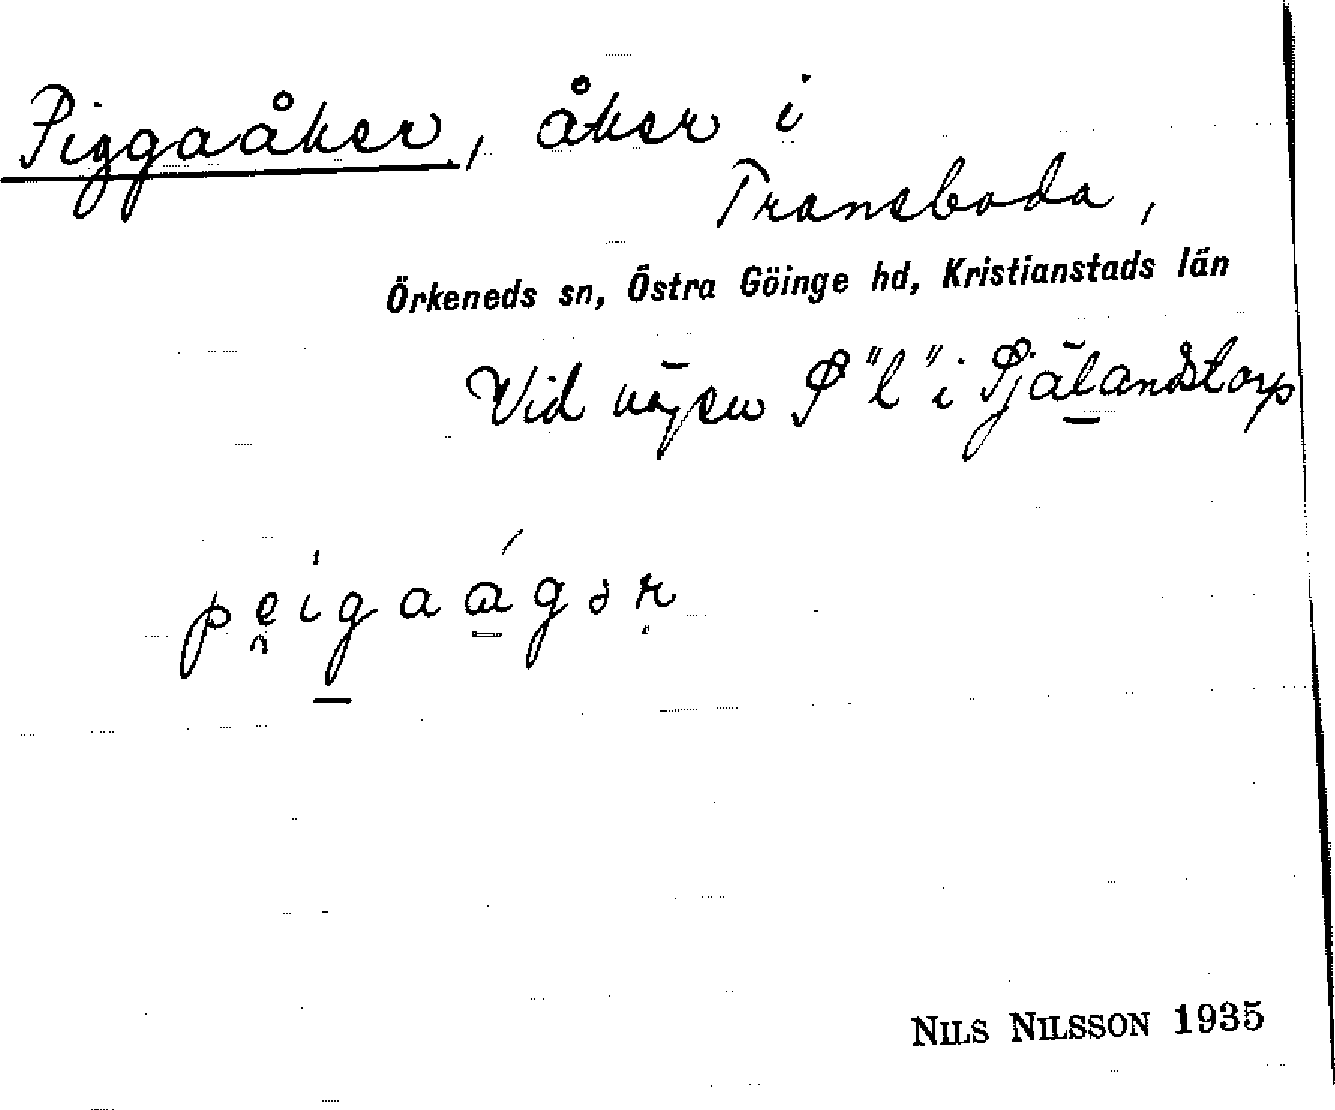 Piggaåker, åker i
Transboda,
Örkeneds sn, Östra Göinge hd, Kristianstads län
Vid vägen P "l" i Själandstorp
peigaågər
NILS NILSSON 1935